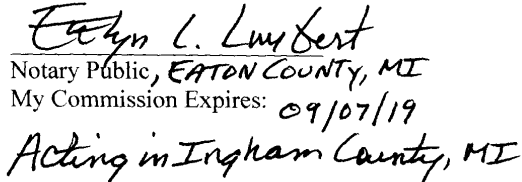 L. Lambert
Notary Public, EATON COUNTY, MI
My Commission Expires: 09/07/19
Acting in Ingham County, MI